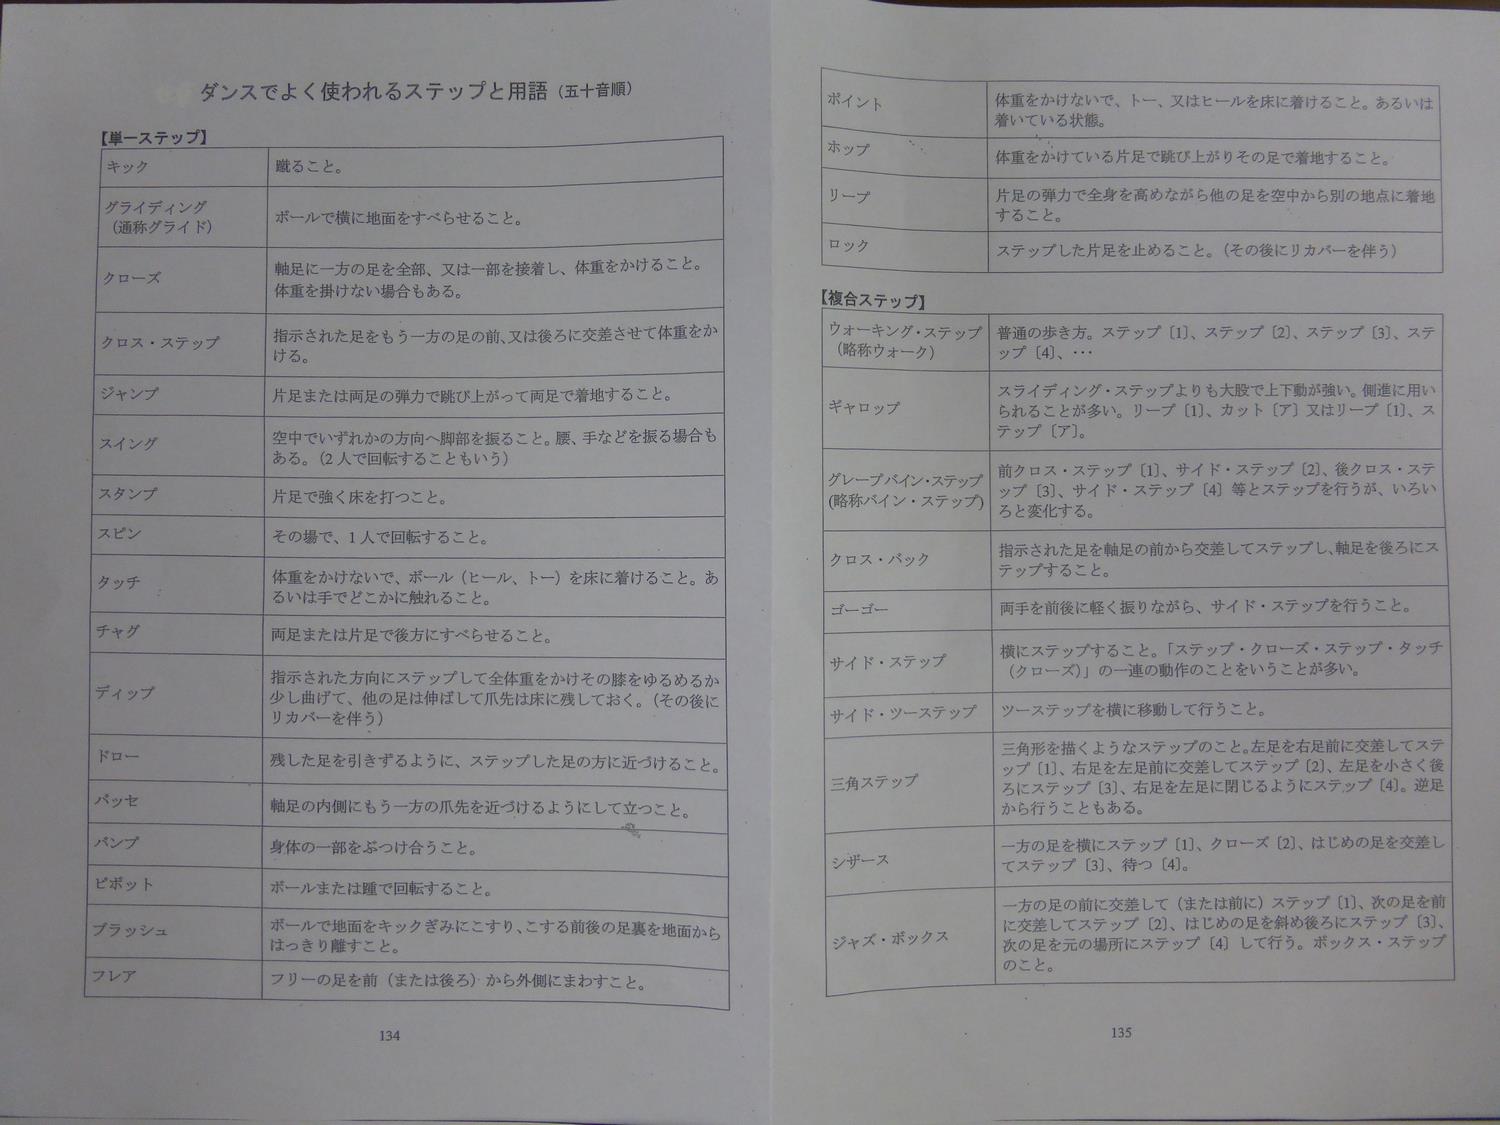 ダンスでよく使われるステップと用語（五十音順）
【単一ステップ】
キック
蹴ること。
グライディング
（通称グライド）
ボールで横に地面をすべらせること。
クローズ
軸足に一方の足を全部、又は一部を接着し、体重をかけること。
体重を掛けない場合もある。
クロス・ステップ
指示された足をもう一方の足の前、又は後ろに交差させて体重をか
ける。
ジャンプ
片足または両足の弾力で跳び上がって両足で着地すること。
スイング
空中でいずれかの方向へ脚部を振ること。腰、手などを振る場合も
ある。（2 人で回転することもいう）
スタンプ
片足で強く床を打つこと。
スピン
その場で、1 人で回転すること。
タッチ
体重をかけないで、ボール（ヒール、トー）を床に着けること。あ
るいは手でどこかに触れること。
チャグ
両足または片足で後方にすべらせること。
ディップ
指示された方向にステップして全体重をかけその膝をゆるめるか
少し曲げて、他の足は伸ばして爪先は床に残しておく。（その後に
リカバーを伴う）
ドロー
残した足を引きずるように、ステップした足の方に近づけること。
パッセ
軸足の内側にもう一方の爪先を近づけるようにして立つこと。
バンプ
身体の一部をぶつけ合うこと。
ピボット
ボールまたは踵で回転すること。
ブラッシュ
ボールで地面をキックぎみにこすり、こする前後の足裏を地面から
はっきり離すこと。
フレア
フリーの足を前（または後ろ）から外側にまわすこと。
134
ポイント
体重をかけないで、トー、又はヒールを床に着けること。あるいは
着いている状態。
ホップ
体重をかけている片足で跳び上がりその足で着地すること。
リープ
片足の弾力で全身を高めながら他の足を空中から別の地点に着地
すること。
ロック
ステップした片足を止めること。（その後にリカバーを伴う）
【複合ステップ】
ウォーキング・ステップ
（略称ウォーク）
普通の歩き方。ステップ〔1〕、ステップ〔2〕、ステップ〔3〕、ステ
ップ〔4〕、･･･
ギャロップ
スライディング・ステップよりも大股で上下動が強い。側進に用い
られることが多い。リープ〔1〕、カット〔ア〕又はリープ〔1〕、ス
テップ〔ア〕。
グレープバイン・ステップ
(略称バイン・ステップ)
前クロス・ステップ〔1〕、サイド・ステップ〔2〕、後クロス・ステ
ップ〔3〕、サイド・ステップ〔4〕等とステップを行うが、いろい
ろと変化する。
クロス・バック
指示された足を軸足の前から交差してステップし、軸足を後ろにス
テップすること。
ゴーゴー
両手を前後に軽く振りながら、サイド・ステップを行うこと。
サイド・ステップ
横にステップすること。「ステップ・クローズ・ステップ・タッチ
（クローズ）」の一連の動作のことをいうことが多い。
サイド・ツーステップ
ツーステップを横に移動して行うこと。
三角ステップ
三角形を描くようなステップのこと。左足を右足前に交差してステ
ップ〔1〕、右足を左足前に交差してステップ〔2〕、左足を小さく後
ろにステップ〔3〕、右足を左足に閉じるようにステップ〔4〕。逆足
から行うこともある。
シザース
一方の足を横にステップ〔1〕、クローズ〔2〕、はじめの足を交差し
てステップ〔3〕、待つ〔4〕。
ジャズ・ボックス
一方の足の前に交差して（または前に）ステップ〔1〕、次の足を前
に交差してステップ〔2〕、はじめの足を斜め後ろにステップ〔3〕、
次の足を元の場所にステップ〔4〕して行う。ボックス・ステップ
のこと。
135